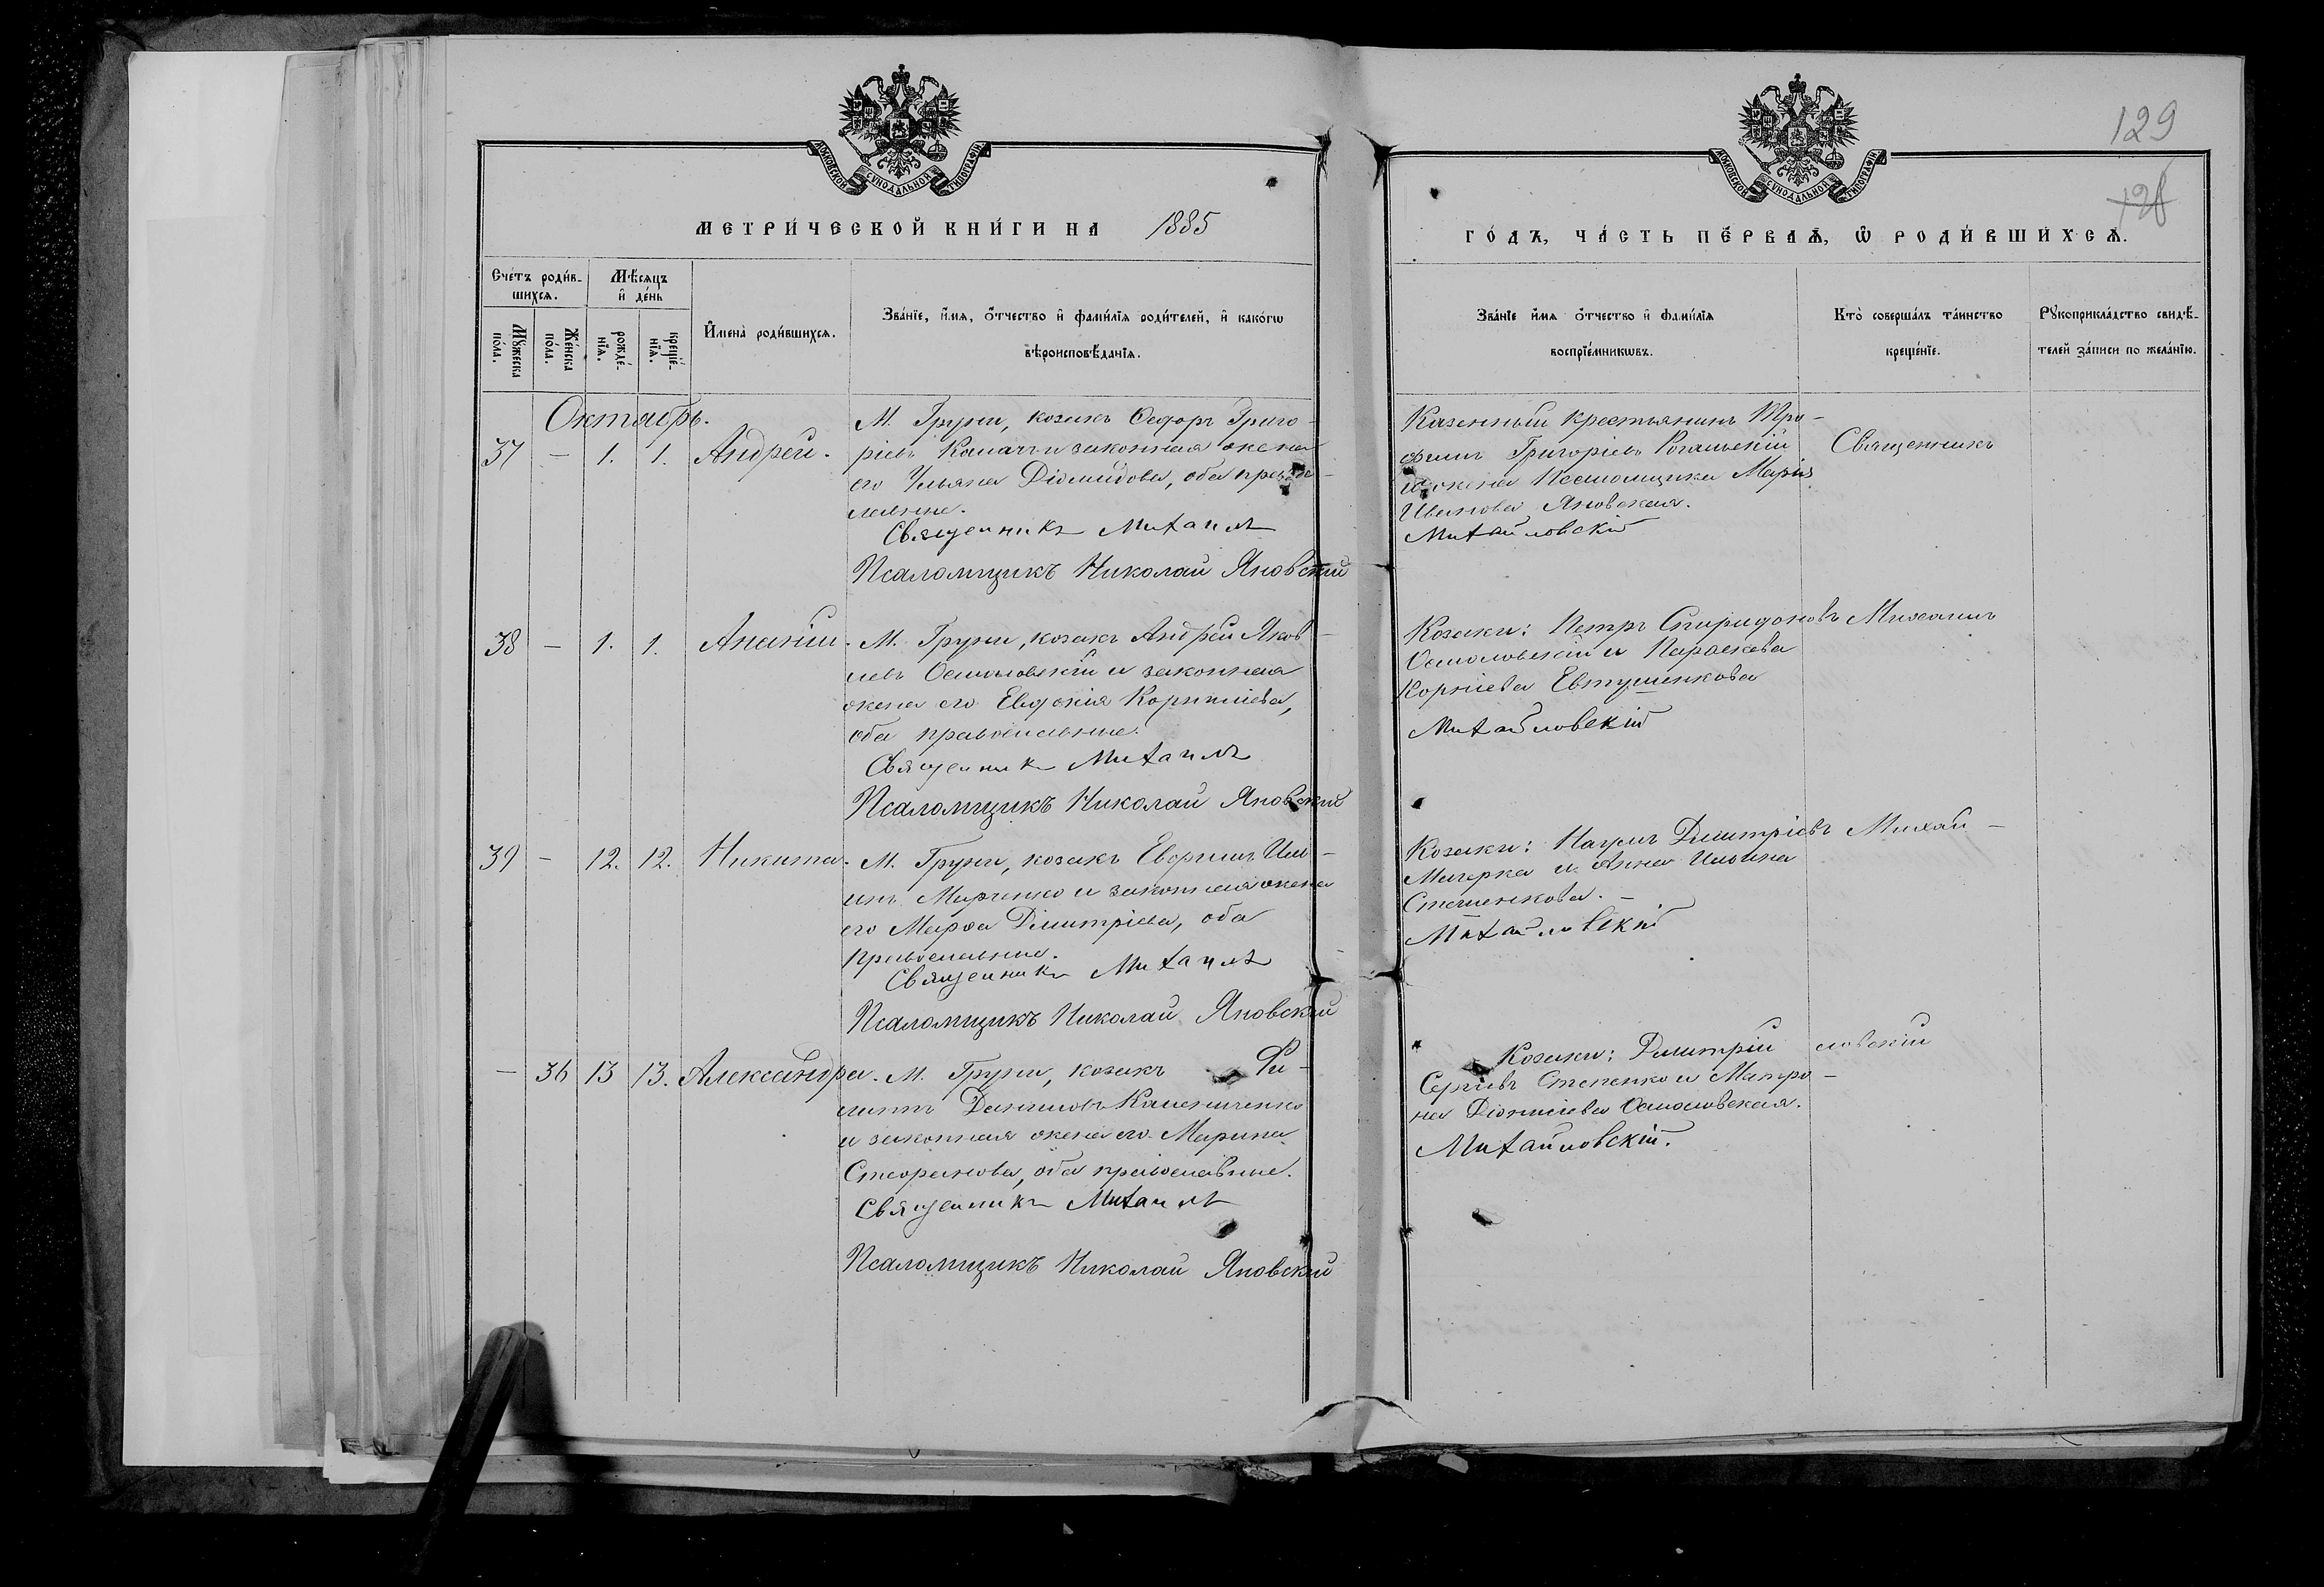 МОСКОВСКОЙ СѴНОДАЛЬНОЙ ТИПОГРАФІИ
МЕТРИ́ЧЕСКОЙ КНИ́ГИ НА 1885
Сче́тъ роди́в-
шихсѧ.
Мꙋ́жеска
по́ла.
Же́нска
по́ла.
Мѣ́сѧцъ
и҆ де́нь
рожде́-
нїѧ.
креще́-
нїѧ.
И҆мена̀ роди́вшихсѧ.
Зва́нїе, и҆́мѧ, ѻ҆́тчество и҆ фами́лїѧ роди́телей, и҆ како́гѡ
вѣроисповѣ́данїѧ.
Октябрь.
37 – 1. 1. Андрей.
М. Груни, козакъ Ѳедоръ Григо-
ріевъ и законная жена
его Ульяна Діомидова, оба правос-
лавные.
Священникъ Михаилъ
Псаломщикъ Николай Яновскій
38 – 1. 1. Ананій.
М. Груни, козакъ Андрей Яков-
левъ Осмоловскій и законная
жена его Евдокія Корниліева,
оба православные.
Священникъ Михаилъ
Псаломщикъ Николай Яновскій
39 – 12. 12. Никита.
М. Груни, козакъ Евфимъ Иль-
инъ Марченко и законная жена
его Марфа Димитріева, оба
православные.
Священникъ Михаилъ
Псаломщикъ Николай Яновскій
– 36 13 13. Александра.
М. Груни, козакъ Фи-
липпъ Даниловъ Калениченко
и законная жена его Марина
Стефанова, оба православные.
Священникъ Михаилъ
Псаломщикъ Николай Яновскій
129
126
МОСКОВСКОЙ СѴНОДАЛЬНОЙ ТИПОГРАФІИ
ГО́ДЪ, ЧА́СТЬ ПЕ́РВАѦ, Ѽ РОДИ́ВШИХСѦ.
Зва́нїе и҆́мѧ ѻ҆́тчество и҆ фами́лїѧ
воспрїе́мникѡвъ.
Кто̀ соверша́лъ та́инство
креще́нїе.
Рꙋкоприкла́дство свидѣ́-
телей за́писи по жела́нїю.
Казенный крестьянинъ Тро-
фимъ Григоріевъ Рогальскій
и жена Псаломщика Марія
Иванова Яновская.
Священникъ
Михайловскій
Козаки: Петръ Спиридоновъ
Осмоловскій и Параскева
Корніева Евтушенкова
Михаилъ
Михайловскій
Козаки: Наумъ Димитріевъ
и Анна Ильина
Стешенкова. –
Михай-
Михайловскій
Козаки: Димитрій
Сергіевъ Степенко и Матро-
на Діонисіева Осмоловская.
ловскій
Михайловскій.